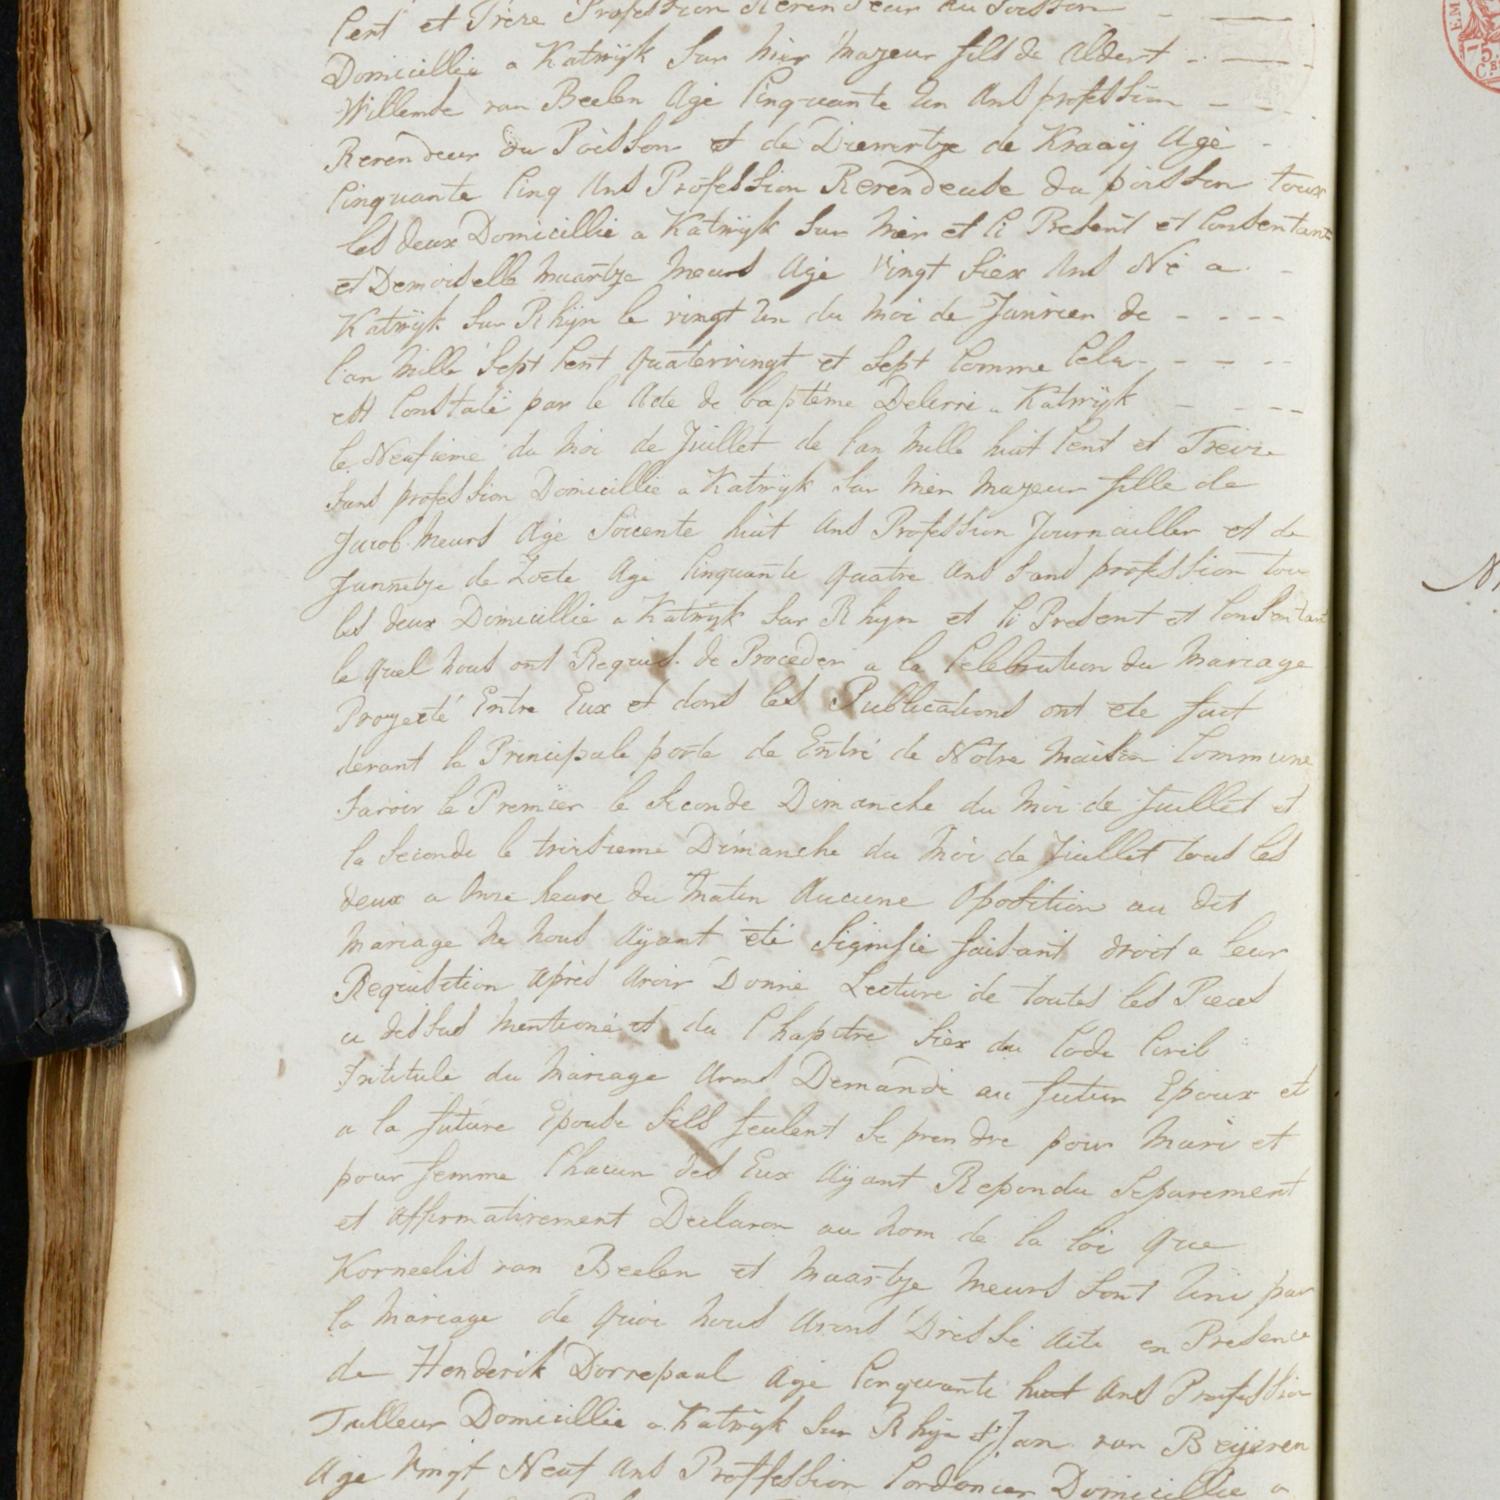 Cent et Treze Profession Revendeur du Poisson
Domicillie a Katwijk Sur Mer Majeur fils de Aldert
Willemse van Beelen Agé Cinquante Un Ans profession
Revendeur du Poisson et de Diewertje de Kraaij Agé
Cinquante Cinq Ans Profession Revendeuse du poisson tous
les deux Domicillie a Katwijk Sur Mer et Ci Present et Consentant
et Demoiselle Maartje Meurs Agé Vingt Siex Ans Né a
Katwijk Sur Rhijn le vingt Un du Moi de Janvier de
l'an Mille Sept Cent Quatervingt et Sept Comme Cela
est Constaté par le Acte de baptéme Delivri a Katwijk
le Neufieme du Moi de Juillet de l'an Mille huit Cent et Treize
Sans profession Domicillie a Katwijk Sur Mer Majeur fille de
Jacob Meurs Agé Soicente huit Ans Profession Journallier et de
Jannetje de Zoete Age Cinquante quatre Ans Sans profession tou
les deux Domicillie a Katwijk Sur Rhijn et Ci Present et Consentant
le quel Nous ont Requis de Proceder a la Celebration du Mariage
Proyecté Entre Eux et dons les Publications ont ete fait
devant la Principale porte de Entré de Notre Maison Commune
Savoir le Premier le Seconde Dimanche du Moi de Juillet et
la Seconde le troisieme Dimanche du Moi de Juillet tous les
deux a Onze heure du Matin Aucune Oposition au dit
Mariage Ne Nous Aÿant été Signifie faisant droit a leur
Requisition Après Avoir Donné Lecture de toutes les Pieces
ci dessus Mentioné et du Chapitre Siex du Code Civil
Intitule du Mariage Avons Demandé au futur Epoux et
a la future Epouse Sils feulent Se prendre pour Mari et
pour femme Chacun des Eux Aÿant Repondu Separement
et Affirmativement Declaron au Nom de la Loi Que
Korneelis van Beelen et Maartje Meurs Sont Uni par
la Mariage de Quoi Nous Avons Dressé Acte en Presence
de Henderik Dorrepaal Agé Cinquante huit Ans Profession
Tailleur Domicillie a Katwijk Sur Rhijn et Jan van Beijeren
Age Vingt Neuf Ans Proffession Cordonier Domicillie a